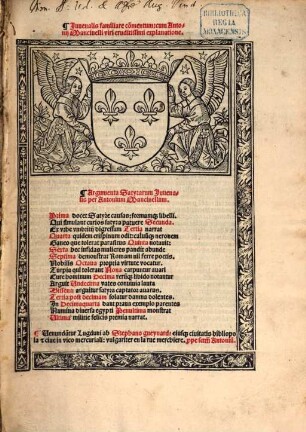 BIBLIOTHECA
REGIA
MONACENSIS
¶ Iuuenalis familiare cōmentum:cum Anto-
nij Mancinelli viri eruditissimi explanatione.
¶ Argumenta Satyrarum Iuuena-
lis per Antonium Mancinellum.
Prima docet Satyre causas: formamq; libelli.
Qui simulant curios satyra patuere Secunda.
Ex vrbe vmbritij digressum Tertia narrat
Quarta quidem crispinum odit caluūq; neronem
Gaueo que tolerat parasitus Quinta notauit:
Sexta docet insidias mulieres pandit abunde
Septima demonstrat romam nil ferre poetis.
Nobilis Octaua propria virtute vocatur.
Turpia qui tolerant Nona carpuntur auari
Cure dominum Decima versuq; libido notantur
Arguit Undecima vates conuiuia lauta
Bissena arguitur satyra captator auarus.
Tertia post decimam solatur damna dolentes.
In Decimaquarta dant praua exempla parentes
Numina diuersa egypti Penultima monstrat
Ultima militie felicis premia narrat.
¶ Uenundātur Lugduni ab Stephano gueynard: eiusq; ciuitatis bibliopo
la & ciue in vico mercuriali: vulgariter en la rue merchiere, ꝓpe sctm̄ Antoniū.